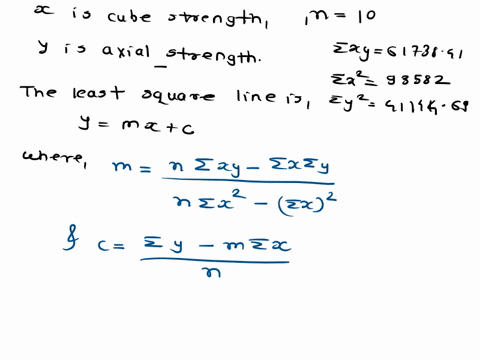 x is cube strength, , n = 10
y is axial strength. Σxy = 61738.41
Σx² = 98582
The least square line is, Σy² = 41144.69
y = mx + c
where, m = n Σxy − Σx Σy / n Σx² − (Σx)²
& c = Σy − m Σx / n